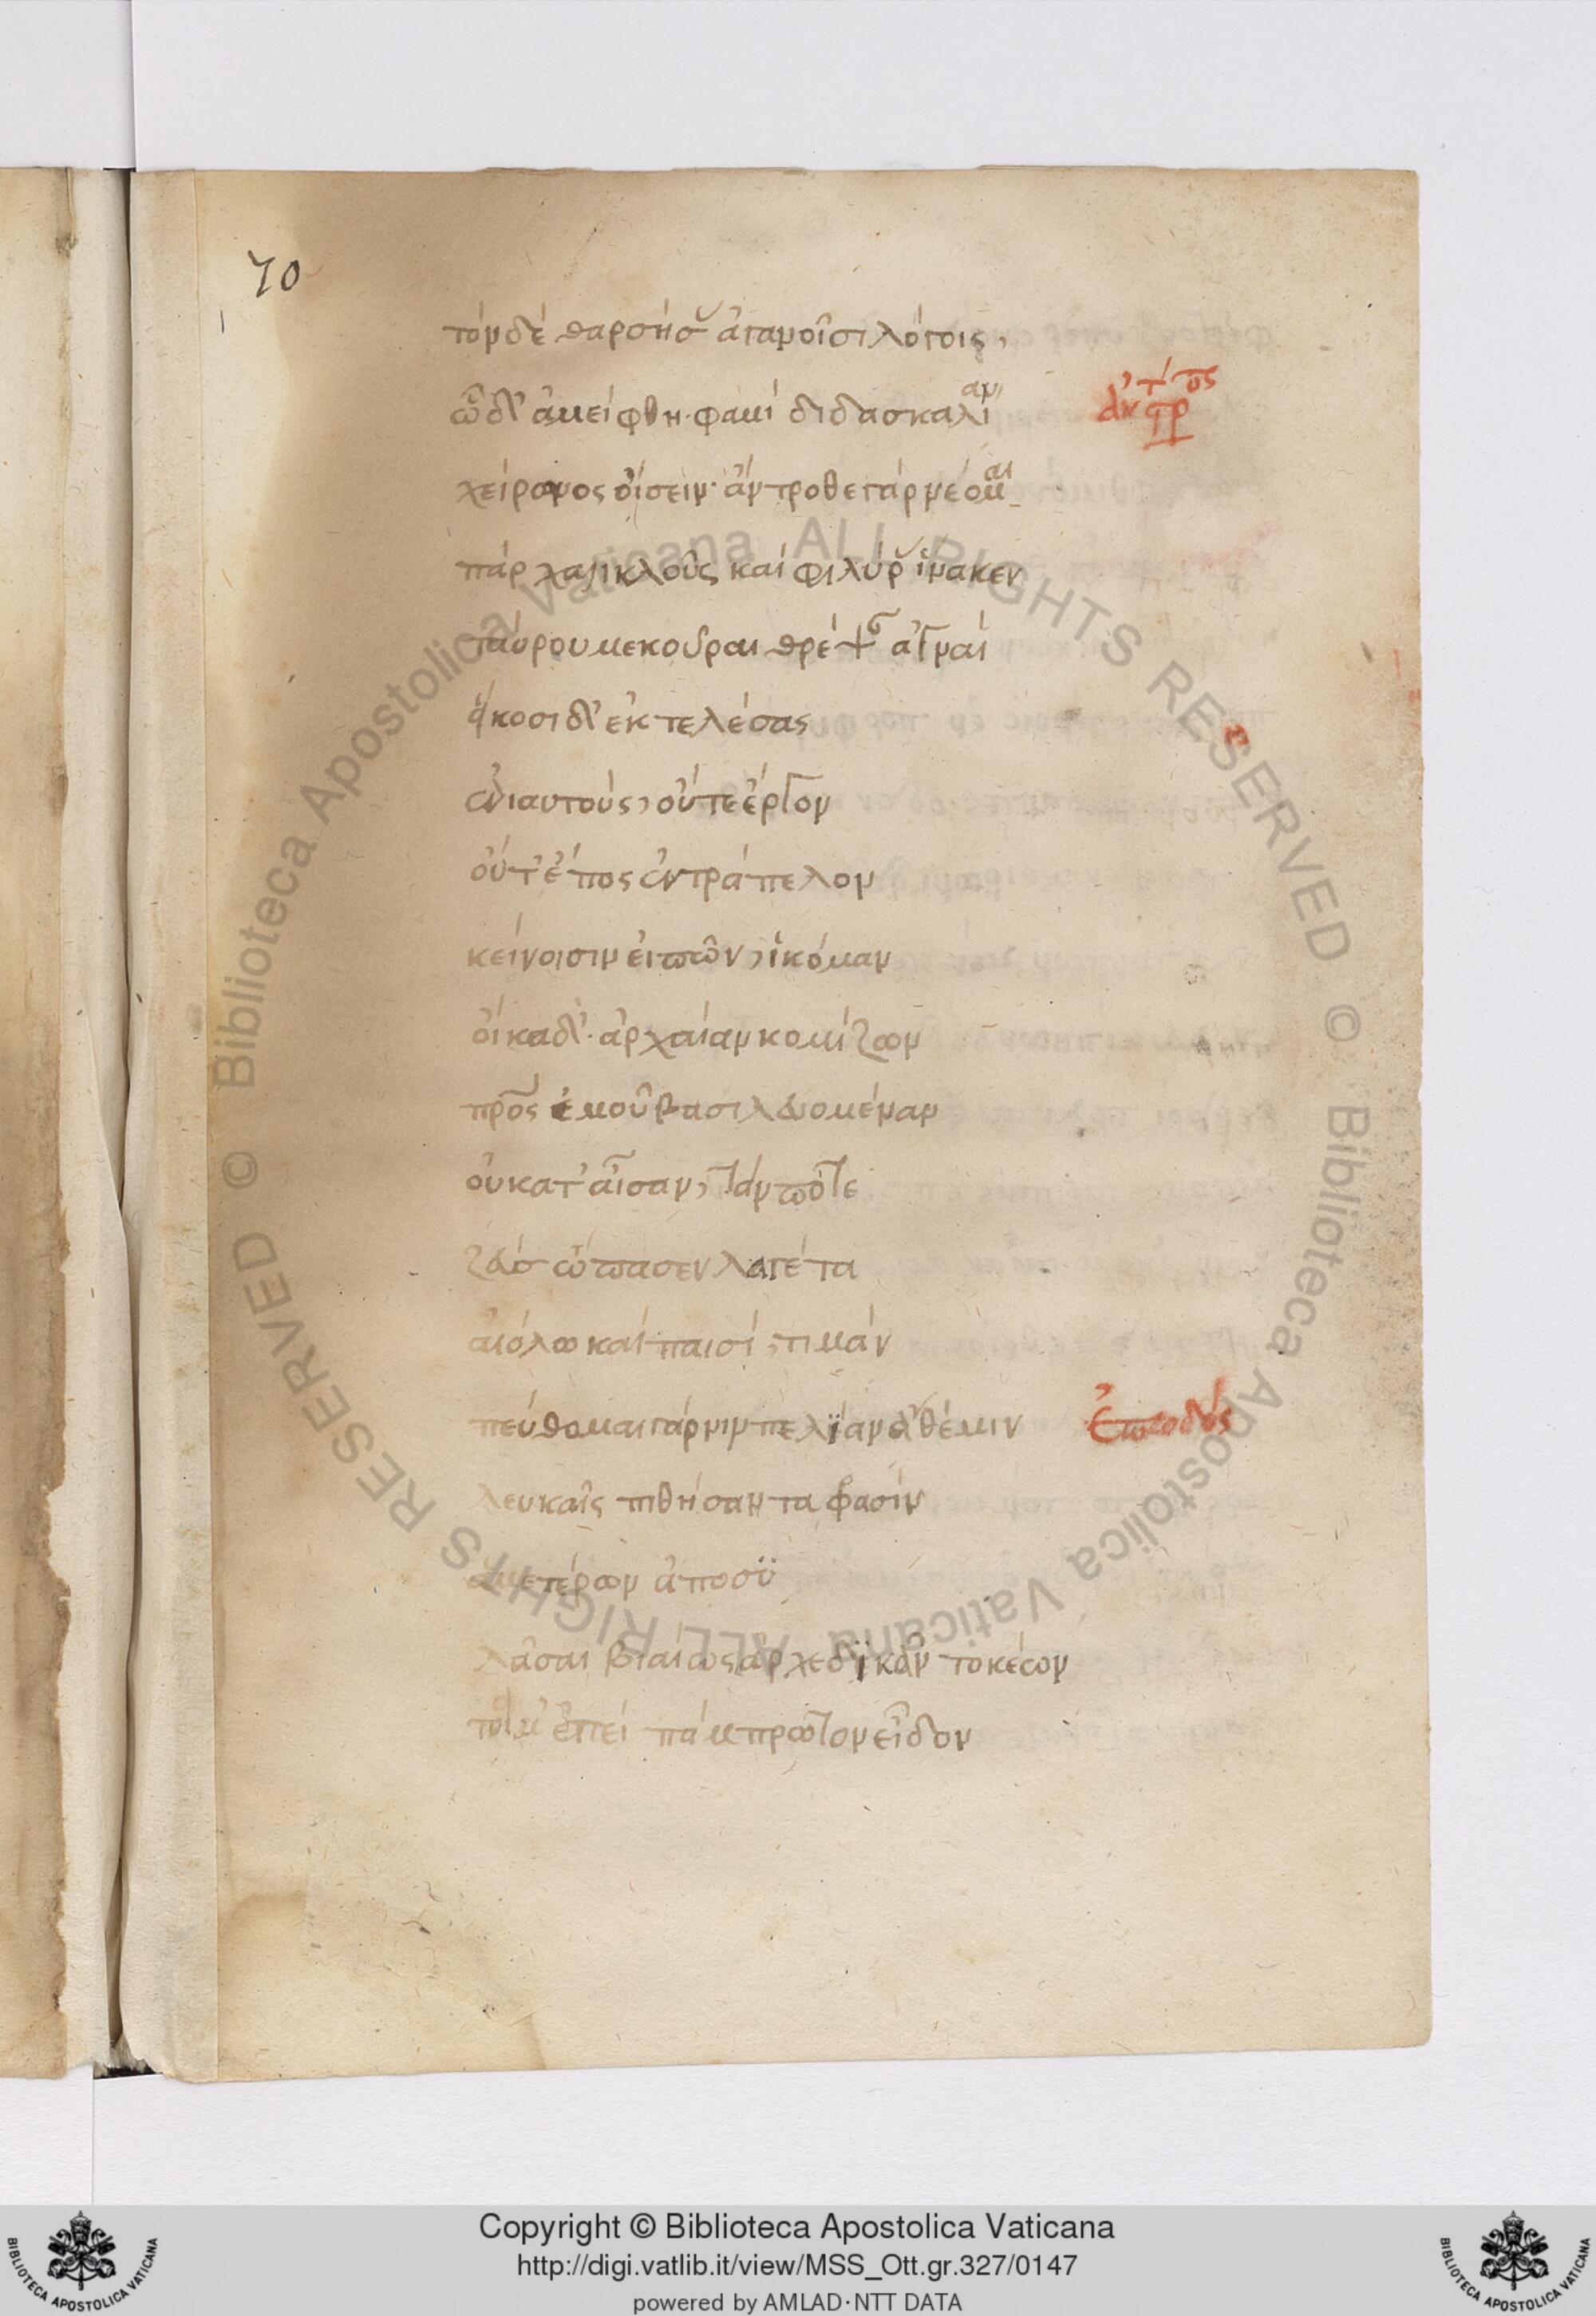 70
τόνδὲ θαρσήσ' ἀγανοῖσι λόγοις,
ὧδ' ἀμείφθη· φαμὶ διδασκαλίαν
ἀντίστρος
χείρωνος οἴσειν· ἄντροθε γὰρ νέομαι
πὰρ χαρικλοῦς καὶ φιλύρ' ἵνα κεν
ταύρου με κοῦραι θρέψαν ἁγναί
εἴκοσι δ' ἐκτελέσας
ἐνιαυτοὺς, οὔτε ἔργον
οὔτ' ἔπος ἐντράπελον
κείνοισιν εἰπὼν, ἱκόμαν
οἴκαδ'· ἀρχαίαν κομίζων
πρὸς ἐμοῦ βασιλευομέναν
οὐ κατ' αἶσαν, τάν ποτε
ζεὺσ ὤπασεν λαγέτα
αἰόλω καὶ παισί, τιμάν
πεύθομαι γάρ νιν πελίαν ἀθέμιν
ἐπωδός
λευκαῖς πιθήσαντα φρασίν
ἁμετέρων ἀποσϋ
λᾶσαι βιαίως ἀρχεδϊκᾶν τοκέων
τοί μ' ἐπεὶ πάμπρωτον εἶδον
Copyright © Biblioteca Apostolica Vaticana
http://digi.vatlib.it/view/MSS_Ott.gr.327/0147
powered by AMLAD·NTT DATA